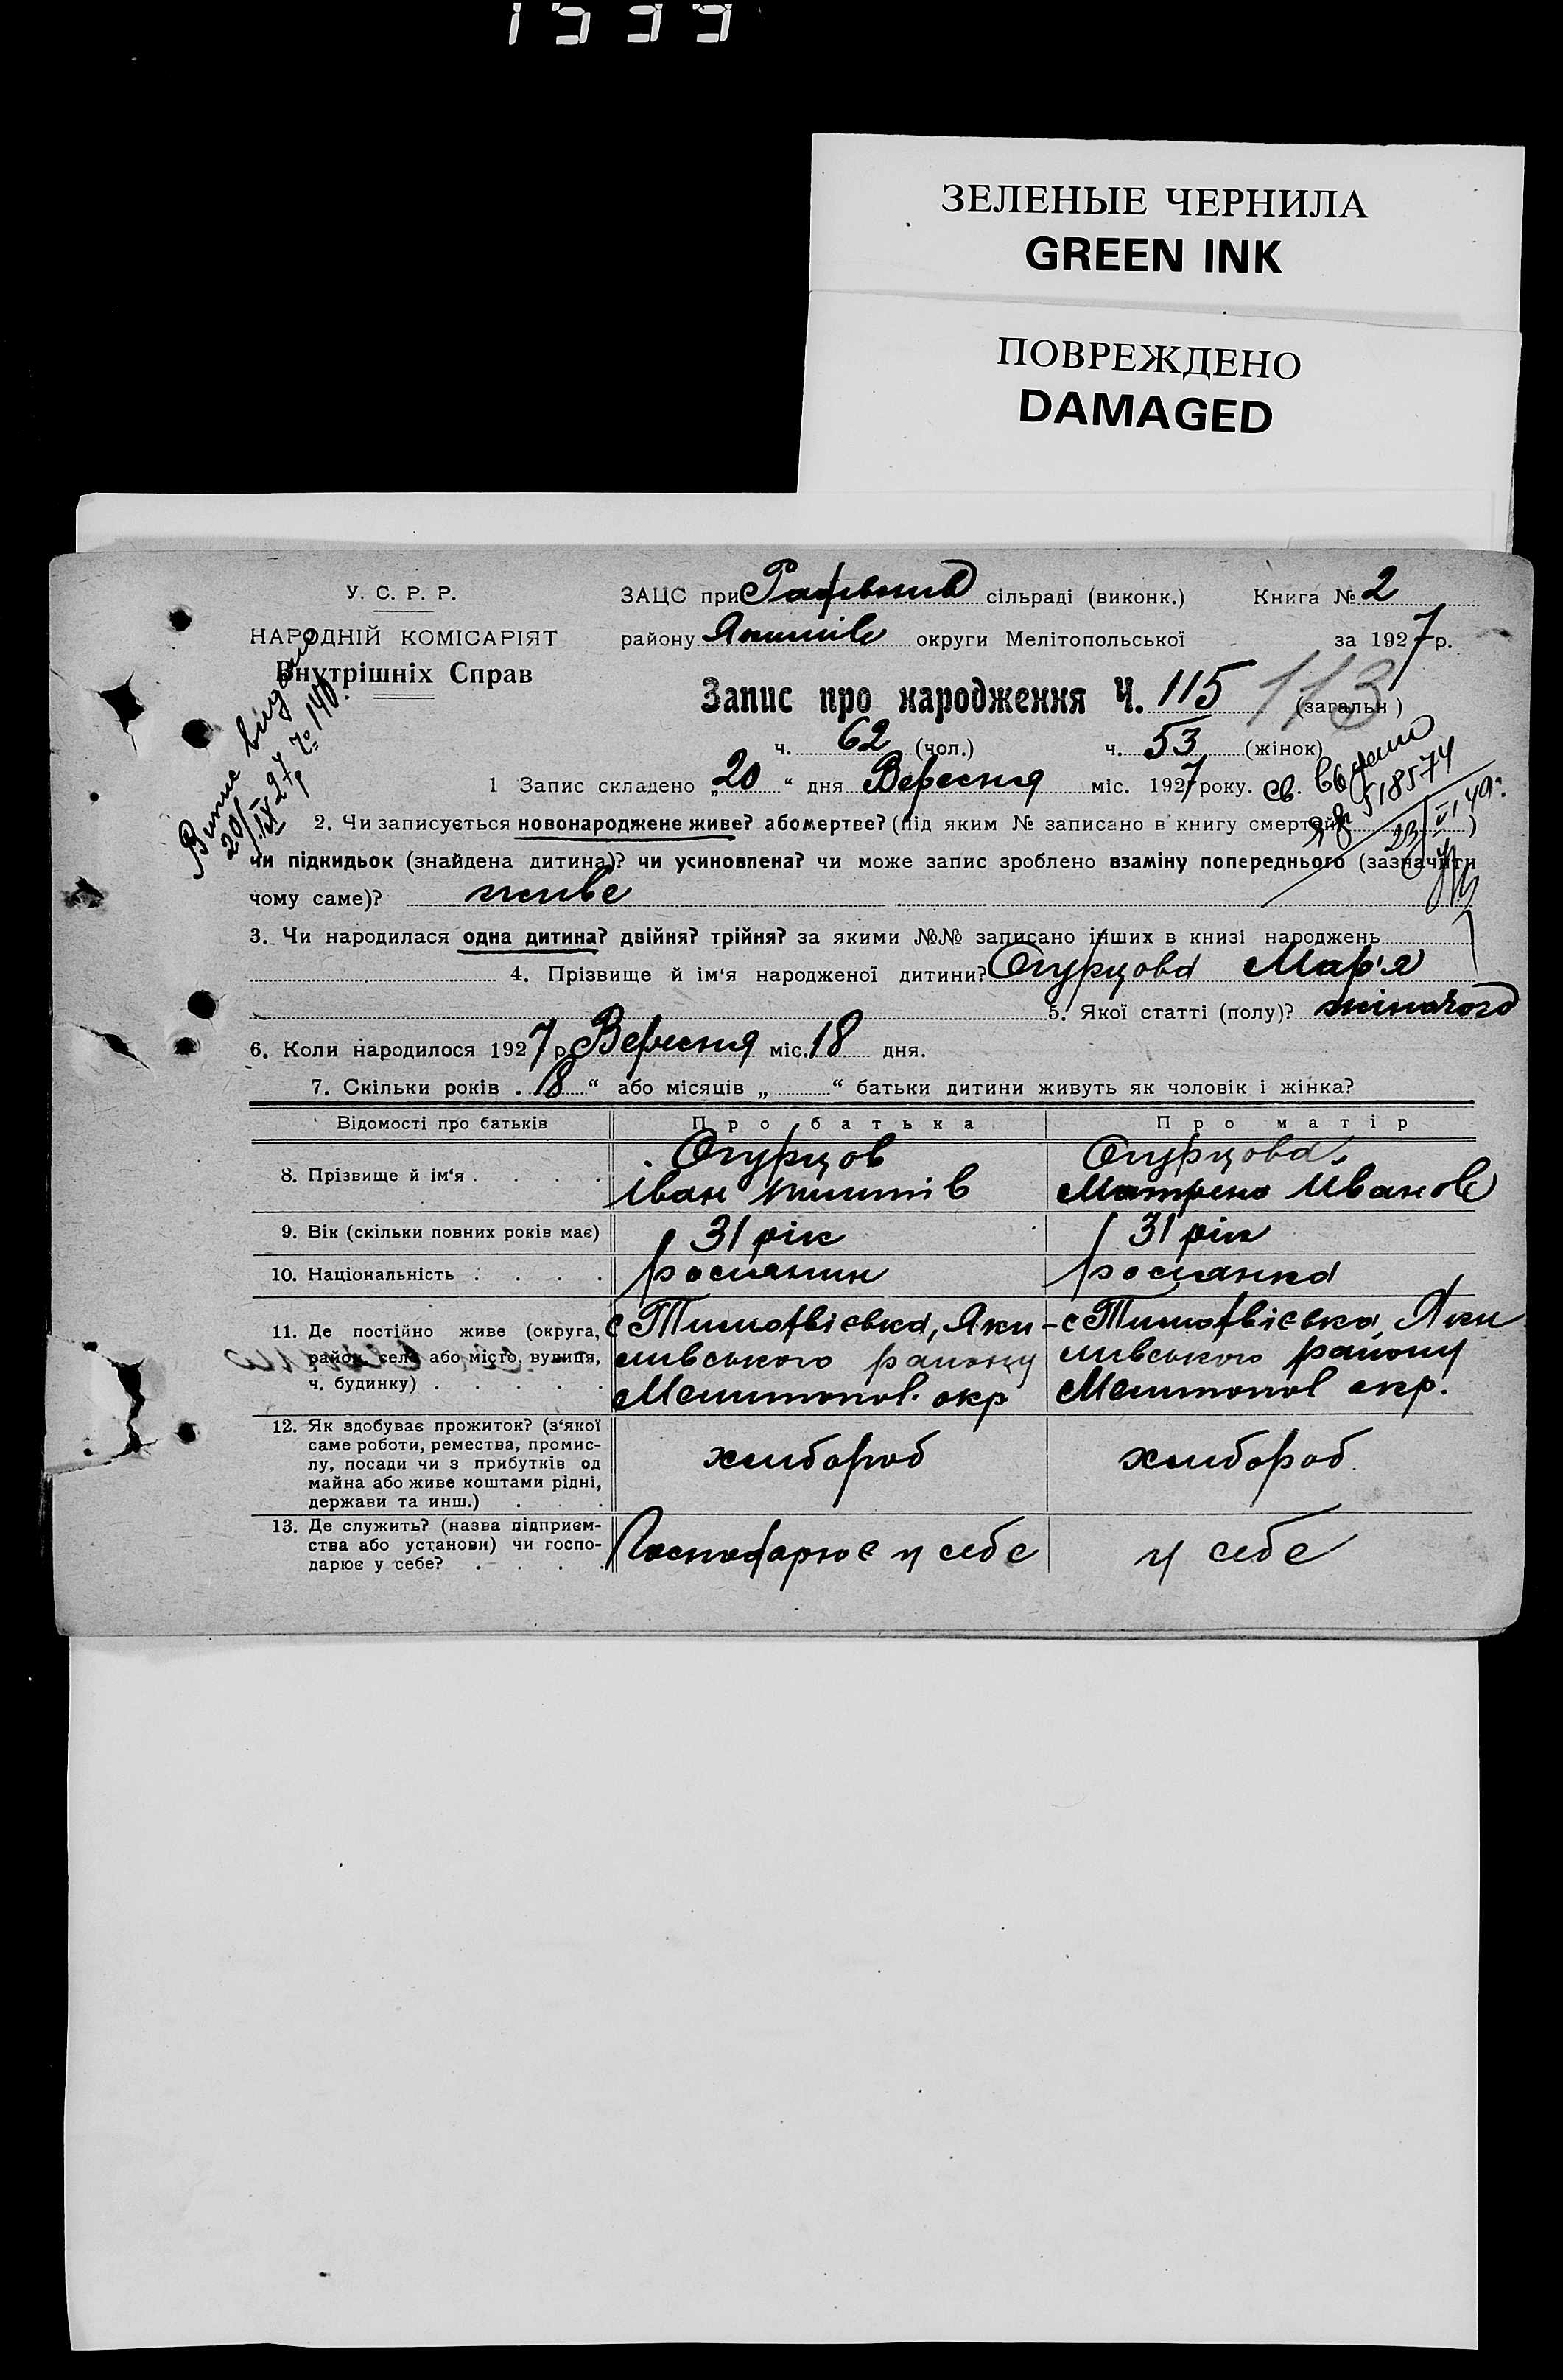 1599
ЗЕЛЕНЫЕ ЧЕРНИЛА
GREEN INK
ПОВРЕЖДЕНО
DAMAGED
У. С. Р. Р.
НАРОДНІЙ КОМІСАРІЯТ
Внутрішніх Справ
ЗАЦС при сільраді (виконк.) Книга № 2
району Якимів округи Мелітопольської за 1927 р.
Запис про народження Ч. 115 113 (загальн)
ч. 62 (чол.) ч. 53 (жінок)
Випис видано
20/IX 27 р № 140.
1 Запис складено „20“ дня Вересня міс. 1927 року.
св. выдано
518574
23/VI 49г.
2. Чи записується новонароджене живе? або мертве? (під яким № записано в книгу смертей )
чи підкидьок (знайдена дитина)? чи усиновлена? чи може запис зроблено взаміну попереднього (зазначити
чому саме)? живе
3. Чи народилася одна дитина? двійня? трійня? за якими №№ записано інших в книзі народжень
4. Прізвище й ім‘я народженої дитини? Огурцова Мар'я
5. Якої статті (полу)? жіночого
6. Коли народилося 1927 р. Вересня міс. 18 дня.
7. Скільки років . 18 “ або місяців „ “ батьки дитини живуть як чоловік і жінка?
Відомості про батьків Про батька Про матір
8. Прізвище й ім‘я . . . . Огурцов Огурцова,
Іван Матрена Иванов
9. Вік (скільки повних років має) 31 рік 31 рік
10. Національність . . . . росіянин росіянка
11. Де постійно живе (округа, с Тимофвієвка, Яки- с Тимофвієвка, Яки
район, село або місто, вулиця, мивського району мивського району
ч. будинку) . . . . . Мелитопол. окр Мелитопол окр.
12. Як здобуває прожиток? (з‘якої
саме роботи, ремества, промис-
лу, посади чи з прибутків од хлибороб хлибороб
майна або живе коштами рідні,
держави та инш.) . . .
13. Де служить? (назва підприєм-
ства або установи) чи госпо- Господарює у себе у себе
дарює у себе? . . . .